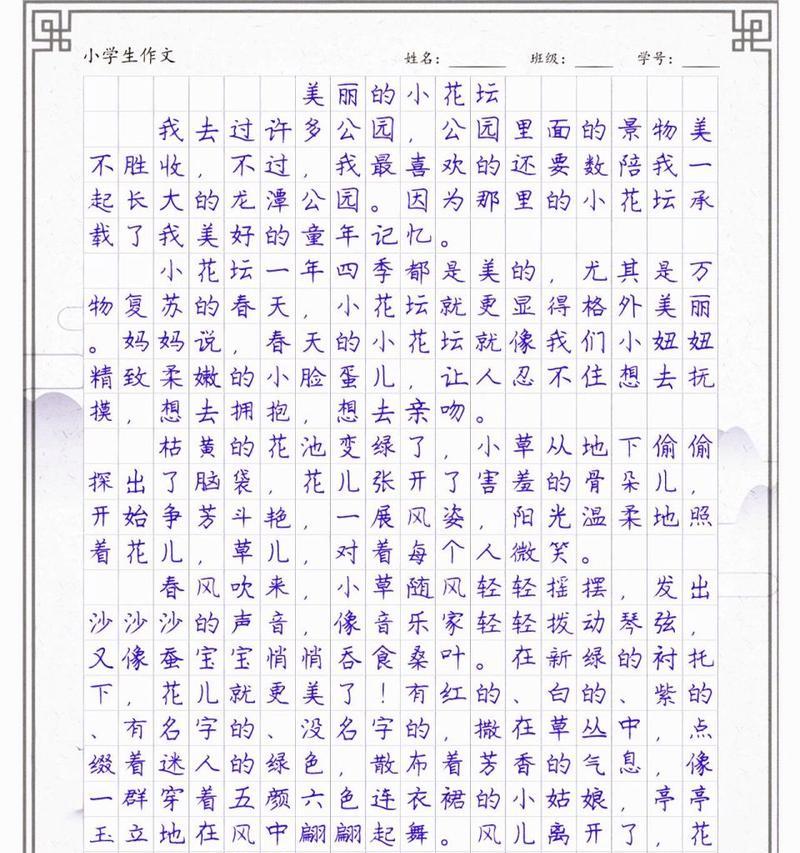 小学生作文 姓名：______ 班级：____ 学号：____
美丽的小花坛
我去过许多公园，公园里面的景物美
不胜收，不过，我最喜欢的还要数陪我一
起长大的龙潭公园。因为那里的小花坛承
载了我美好的童年记忆。
小花坛一年四季都是美的，尤其是万
物复苏的春天，小花坛就更显得格外美丽
。妈妈说，春天的小花坛就像我们小妞妞
精致柔嫩的小脸蛋儿，让人忍不住想去抚
摸，想去拥抱，想去亲吻。
枯黄的花池变绿了，小草从地下偷偷
探出了脑袋，花儿张开了害羞的骨朵儿，
开始争芳斗艳，一展风姿，阳光温柔地照
着花儿，草儿，对着每个人微笑。
春风吹来，小草随风轻轻摇摆，发出
沙沙沙的声音，像音乐家轻轻拨动琴弦，
又像蚕宝宝悄悄吞食桑叶。在新绿的衬托
下，花儿就更美了！有红的、白的、紫的
、有名字的、没名字的，撒在草丛中，点
缀着迷人的绿色，散布着芳香的气息，像
一群穿着五颜六色连衣裙的小姑娘，亭亭
玉立地在风中翩翩起舞。风儿离开了，花